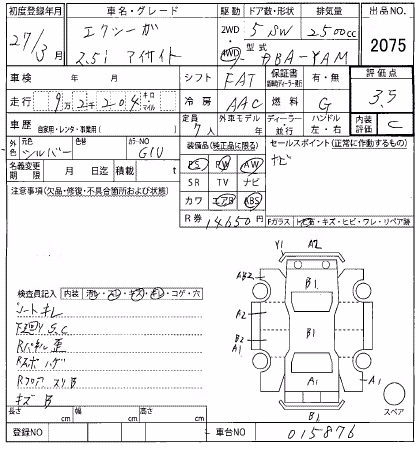 初度登録年月 車名・グレード 駆動 ドア数・形状 排気量 出品NO.
27/3月 エクシーガ 2WD 5 SW 2500cc
2.5i アイサイト 4WD 型式 DBA-YAM 2075
車検 年 月 シフト FAT 保証書 有・無 評価点
走行 9万2千204 キロ マイル 冷房 AAC 燃料 G 3.5
車歴 自家用・レンタ・事業用( ) 定員 7人 外車モデル 年 ディーラー 並行 ハンドル 左・右 内装評価 C
外色 元色 シルバー 色替 カラーNO G1U 装備品(純正品に限る) セールスポイント(正常に作動するもの)
名義変更期限 月 日迄 積載 t PS PW AW ナビ
注意事項(欠品・修復・不具合箇所および状態) SR TV ナビ
カワ エアB ABS
R券 14650円 Fガラス トビ石・キズ・ヒビ・ワレ・リペア跡
Y1 A2
AB2 B1
A2
検査員記入 内装 汚レ・スレ・キズ・キレ・コゲ・穴 B2 B1
シートキレ A1
S.C
Rパネル歪
A1 A1
キズ B B1 スペア
長さ cm 幅 cm 高さ cm
登録NO 車台NO 015876